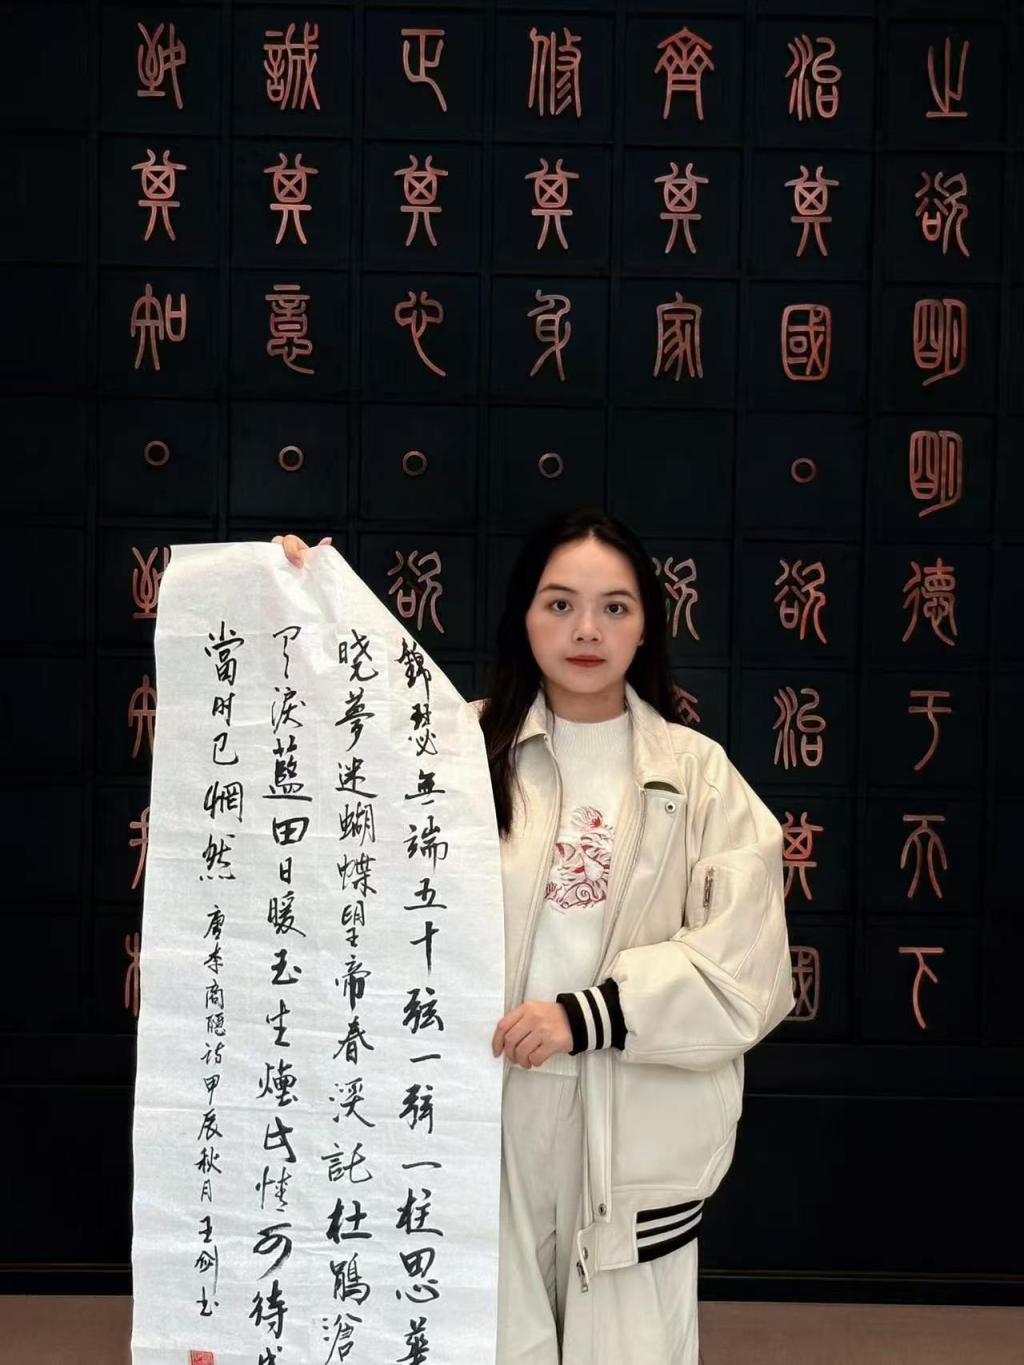 之欲明明德于天下
治其國。欲治其國
齊其家欲
修其身。
正其心。欲
誠其意。
致其知。致知
錦瑟無端五十弦一弦一柱思華
晓夢迷蝴蝶望帝春深託杜鵑滄
淚藍田日暖玉生煙此情可待成
當时已惘然 唐李商隱诗甲辰秋月王剑书